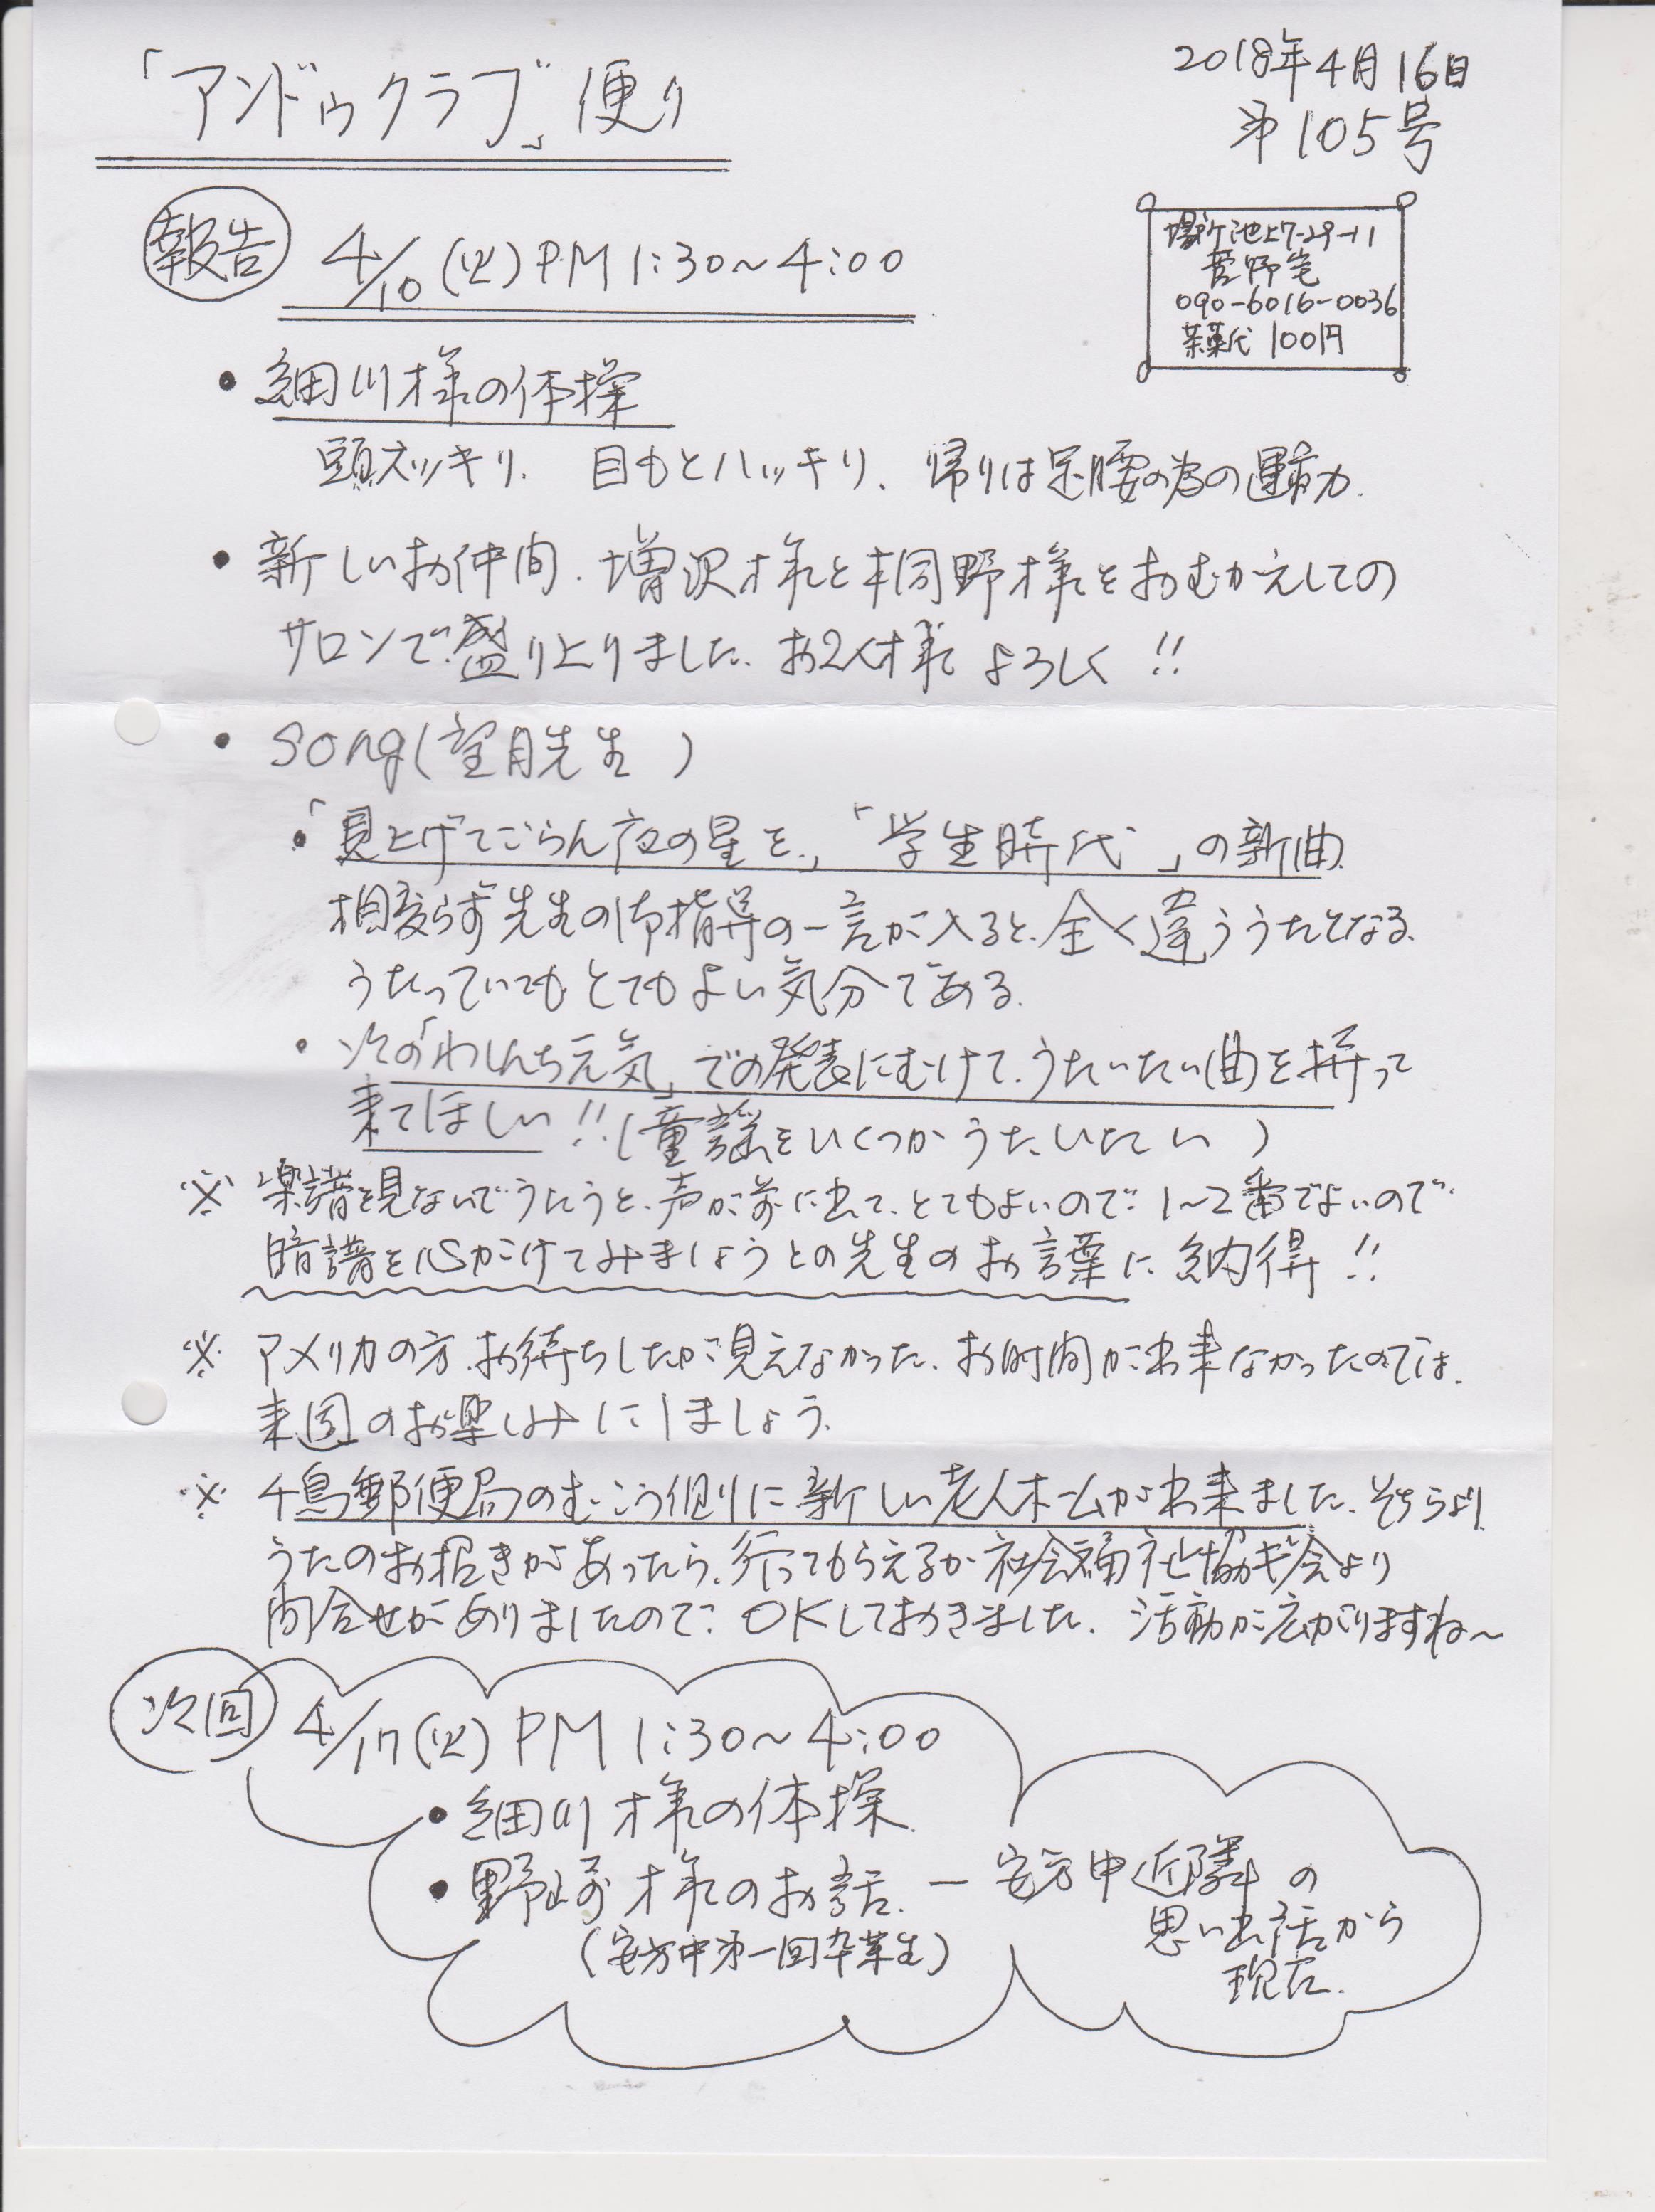 「アンドゥクラブ」便り
2018年4月16日
第105号
場所 池上7-29-11
菅野宅
090-6016-0036
茶菓代 100円
報告 4/10(火)PM1:30~4:00
• 細川様の体操
頭スッキリ. 目もとハッキリ、帰りは足腰の為の運動.
• 新しいお仲間. 増沢様と桐野様をおむかえしての
サロンで盛り上りました. お2人様 よろしく!!
• Song(望月先生 )
•「見上げてごらん夜の星を」「学生時代」の新曲.
相変らず先生の御指導の一言が入ると、全く違ううたとなる.
うたっていてもとてもよい気分である.
• 次の「わしんち元気」での発表にむけて.うたいたい曲を持って
来てほしい!!(童謡をいくつかうたいたい )
※ 楽譜を見ないでうたうと、声が前に出て、とてもよいので、1~2番でよいので
暗譜を心がけてみましょうとの先生のお言葉に納得!!
※ アメリカの方.お待ちしたが見えなかった、お時間が出来なかったのでは.
来週のお楽しみにしましょう.
※ 千鳥郵便局のむこう側に新しい老人ホームが出来ました. そちらより
うたのお招きがあったら、行ってもらえるか社会福祉協ギ会より
問合せがありましたので、OKしておきました. 活動が広がりますね~
次回 4/17(火)PM1:30~4:00
• 細川様の体操.
• 野崎様のお話. ー 安方中近隣の
思い出話から
現在.
(安方中第一回卒業生)